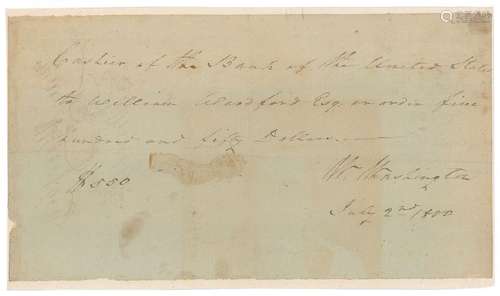 Cashier of the Bank of the United States
to William Woodford Esq. or order five
hundred and fifty Dollars.
$550
W. Washington
July 2nd 1800